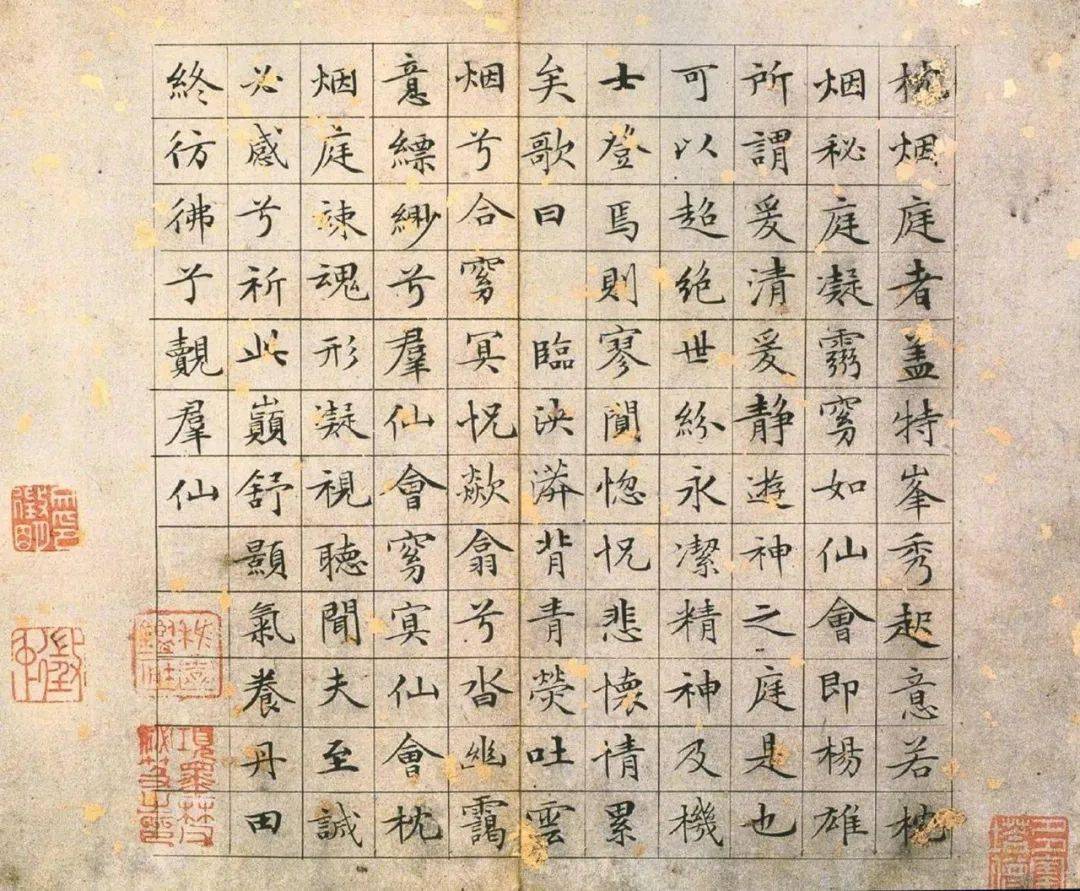 枕烟庭者盖特峯秀起意若枕
烟秘庭凝窅如仙會即楊雄
所謂爰清爰静遊神之庭是也
可以超絶世紛永潔精神及機
士登焉則寥閴惚怳悲懷情累
矣歌曰　臨泱漭背青熒吐雲
烟兮合窅冥怳欻翕兮沓幽靄
意縹緲兮羣仙會窅冥仙會枕
烟庭竦魂形凝視聽聞夫至誠
必感兮祈此巔舒顥氣養丹田
終彷彿兮覿羣仙